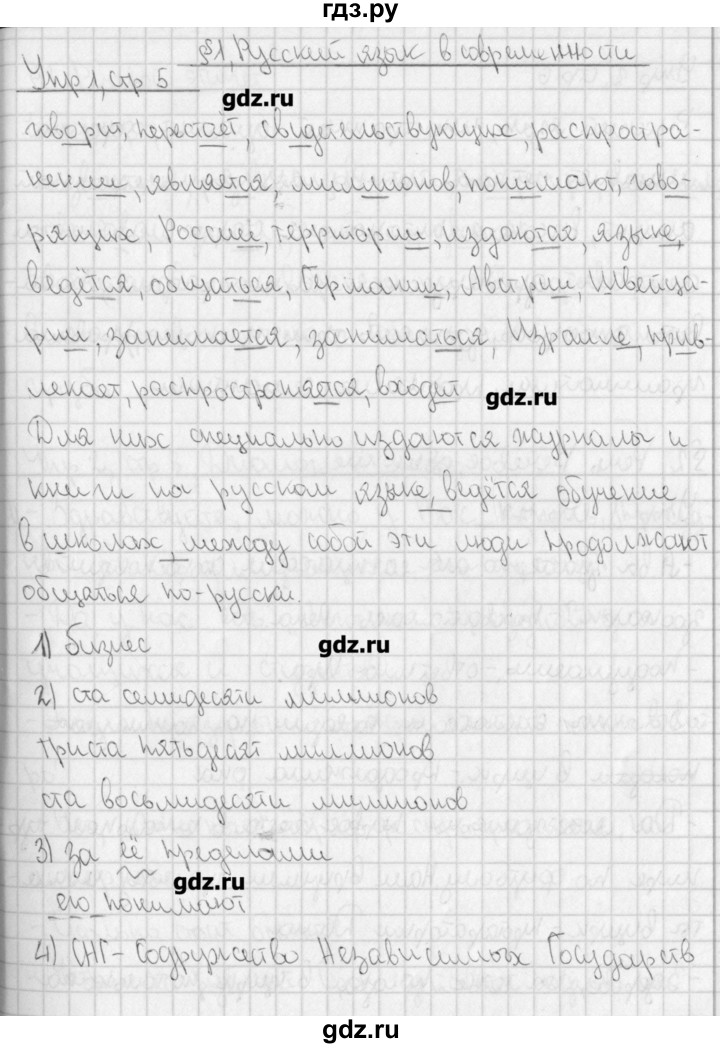 гдз.ру
§1, Русский язык в современности
Упр 1, стр 5
gdz.ru
говорит, перестаёт, свидетельствующих, распростра-
нении, является, миллионов, понимают, гово-
рящих, России, территории, издаются, языке,
ведётся, общаться, Германии, Австрии, Швейца-
рии, занимается, заниматься, Израиле, прив-
лекает, распространяется, входит
gdz.ru
Для них специально издаются журналы и
книги на русском языке, ведётся обучение
в школах, между собой эти люди продолжают
общаться по-русски.
1) бизнес
gdz.ru
2) ста семидесяти миллионов
триста пятьдесят миллионов
ста восьмидесяти миллионов
3) за её пределами
gdz.ru
его понимают
4) СНГ - Содружество Независимых Государств
gdz.ru